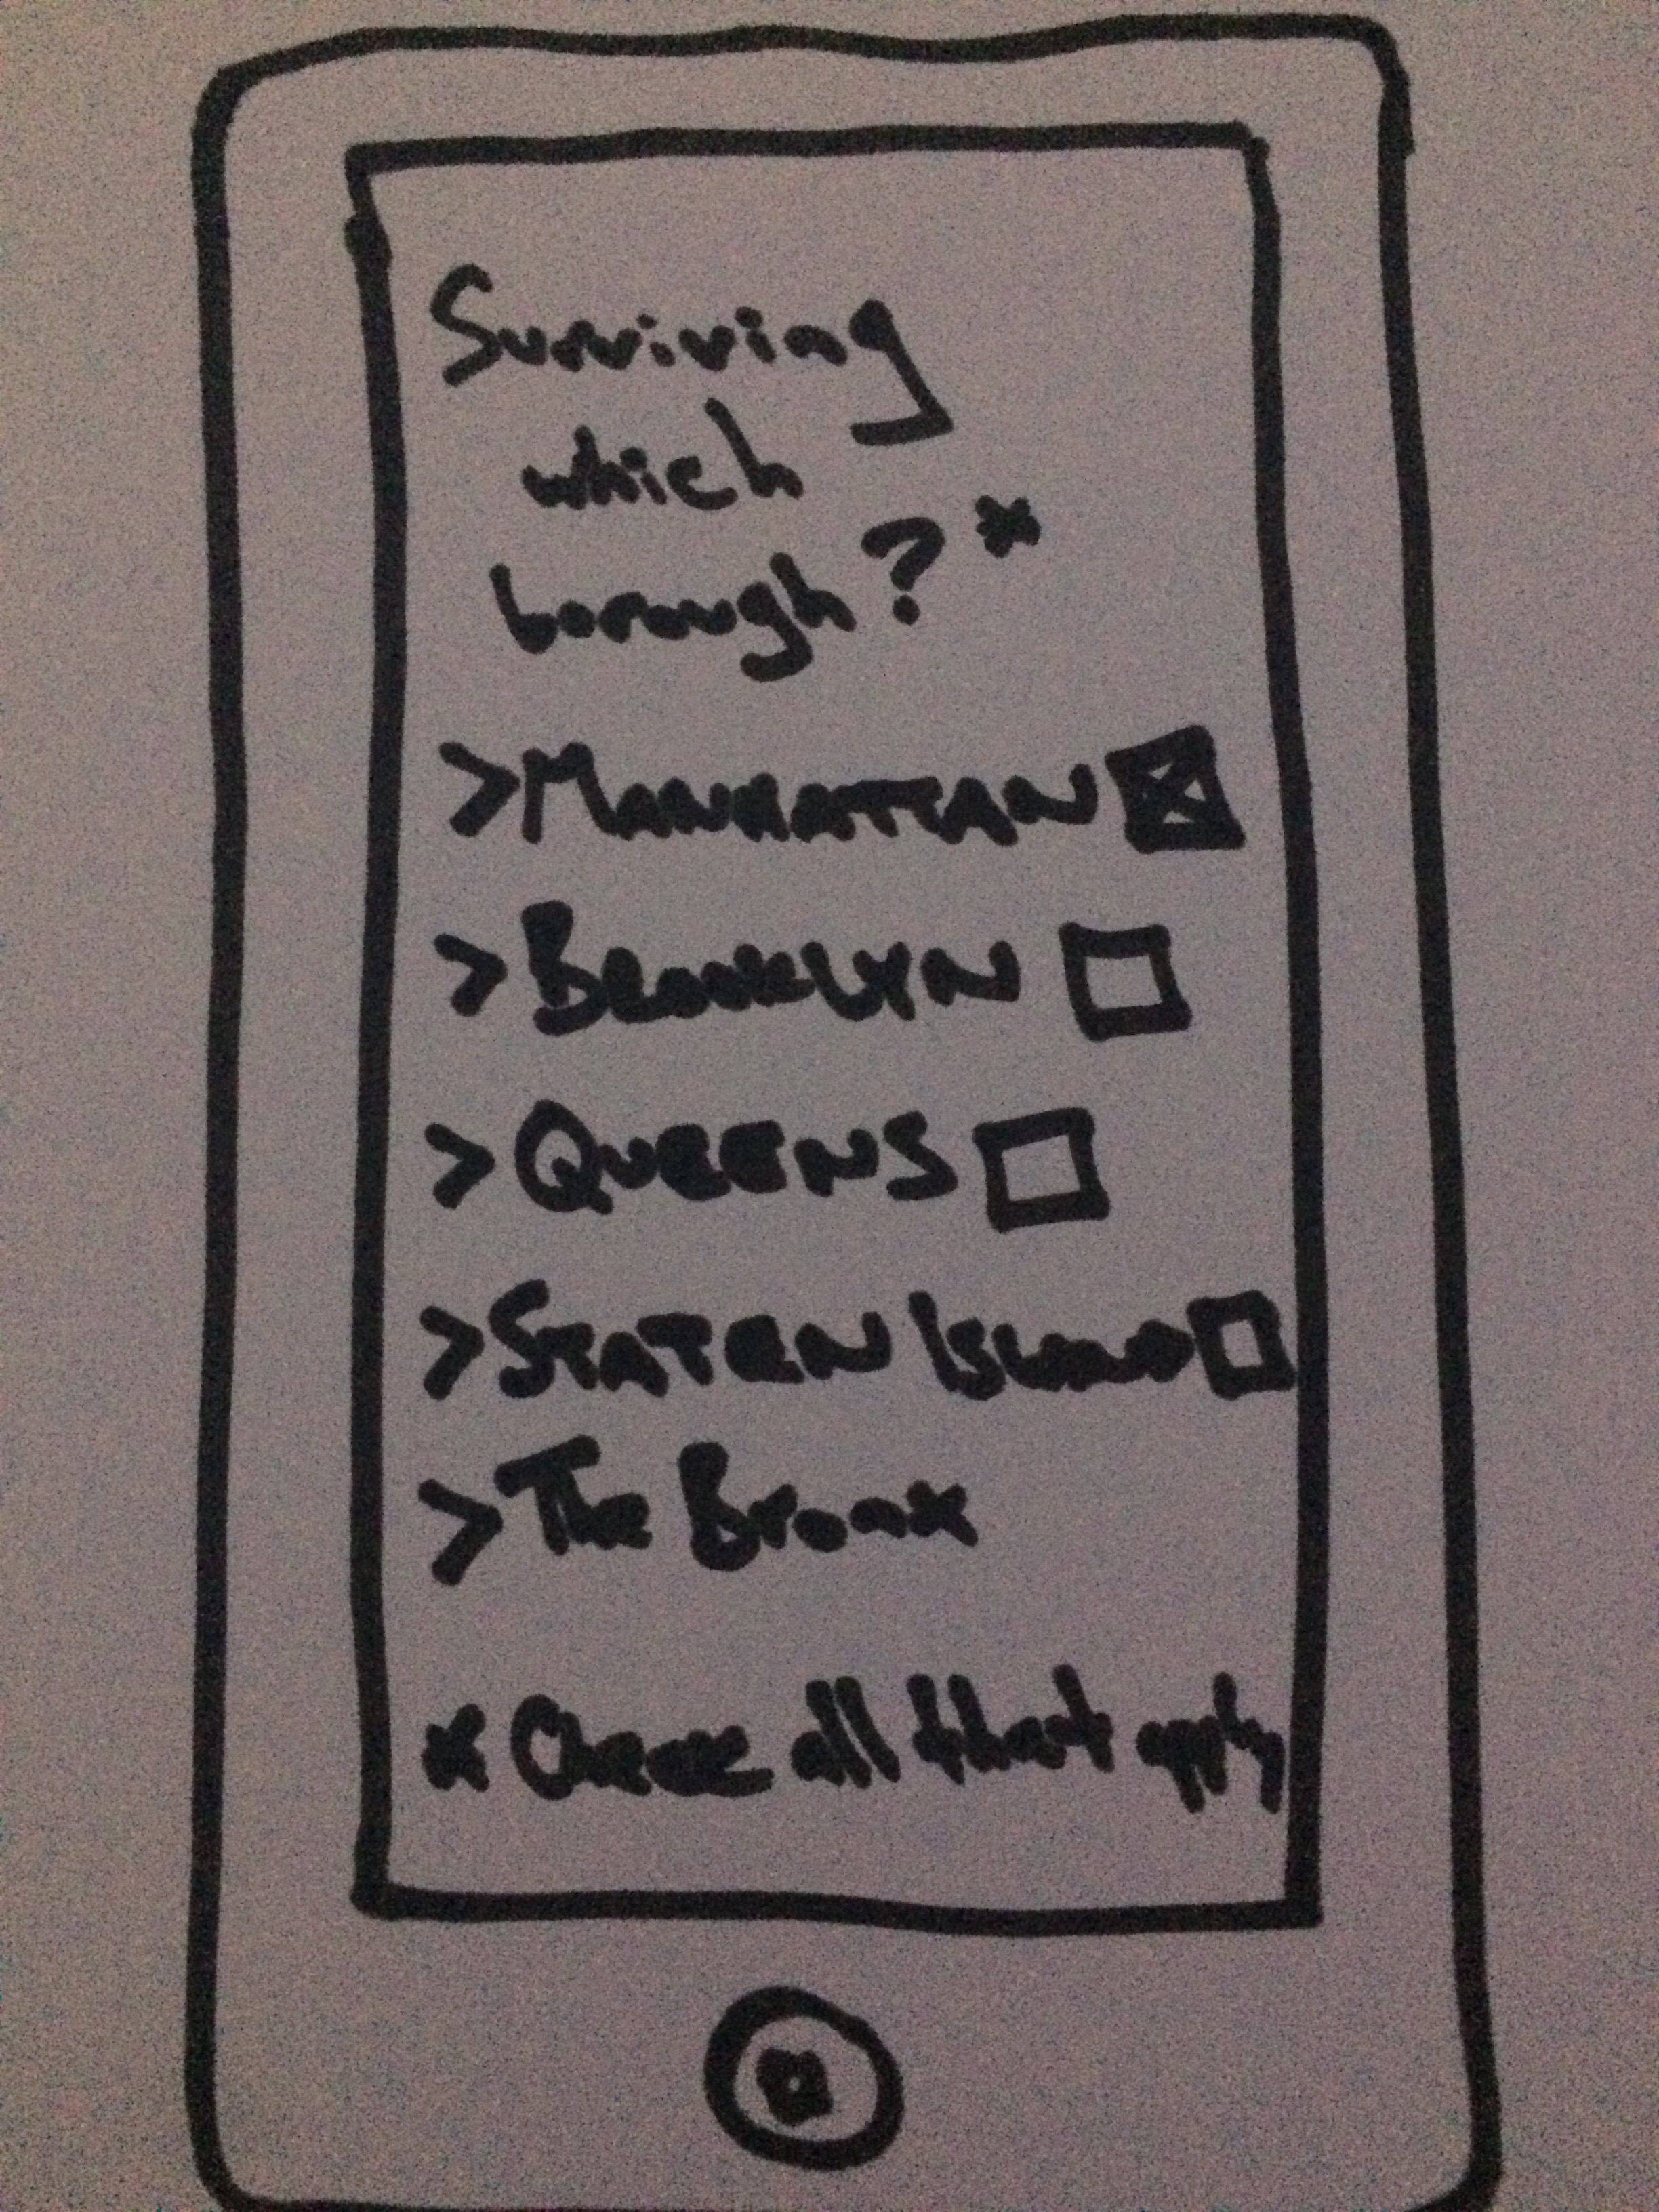 Surviving
which
borough? *
> MANHATTAN ☒
> BROOKLYN ☐
> QUEENS ☐
> STATEN ISLAND ☐
> The Bronx
* Check all that apply